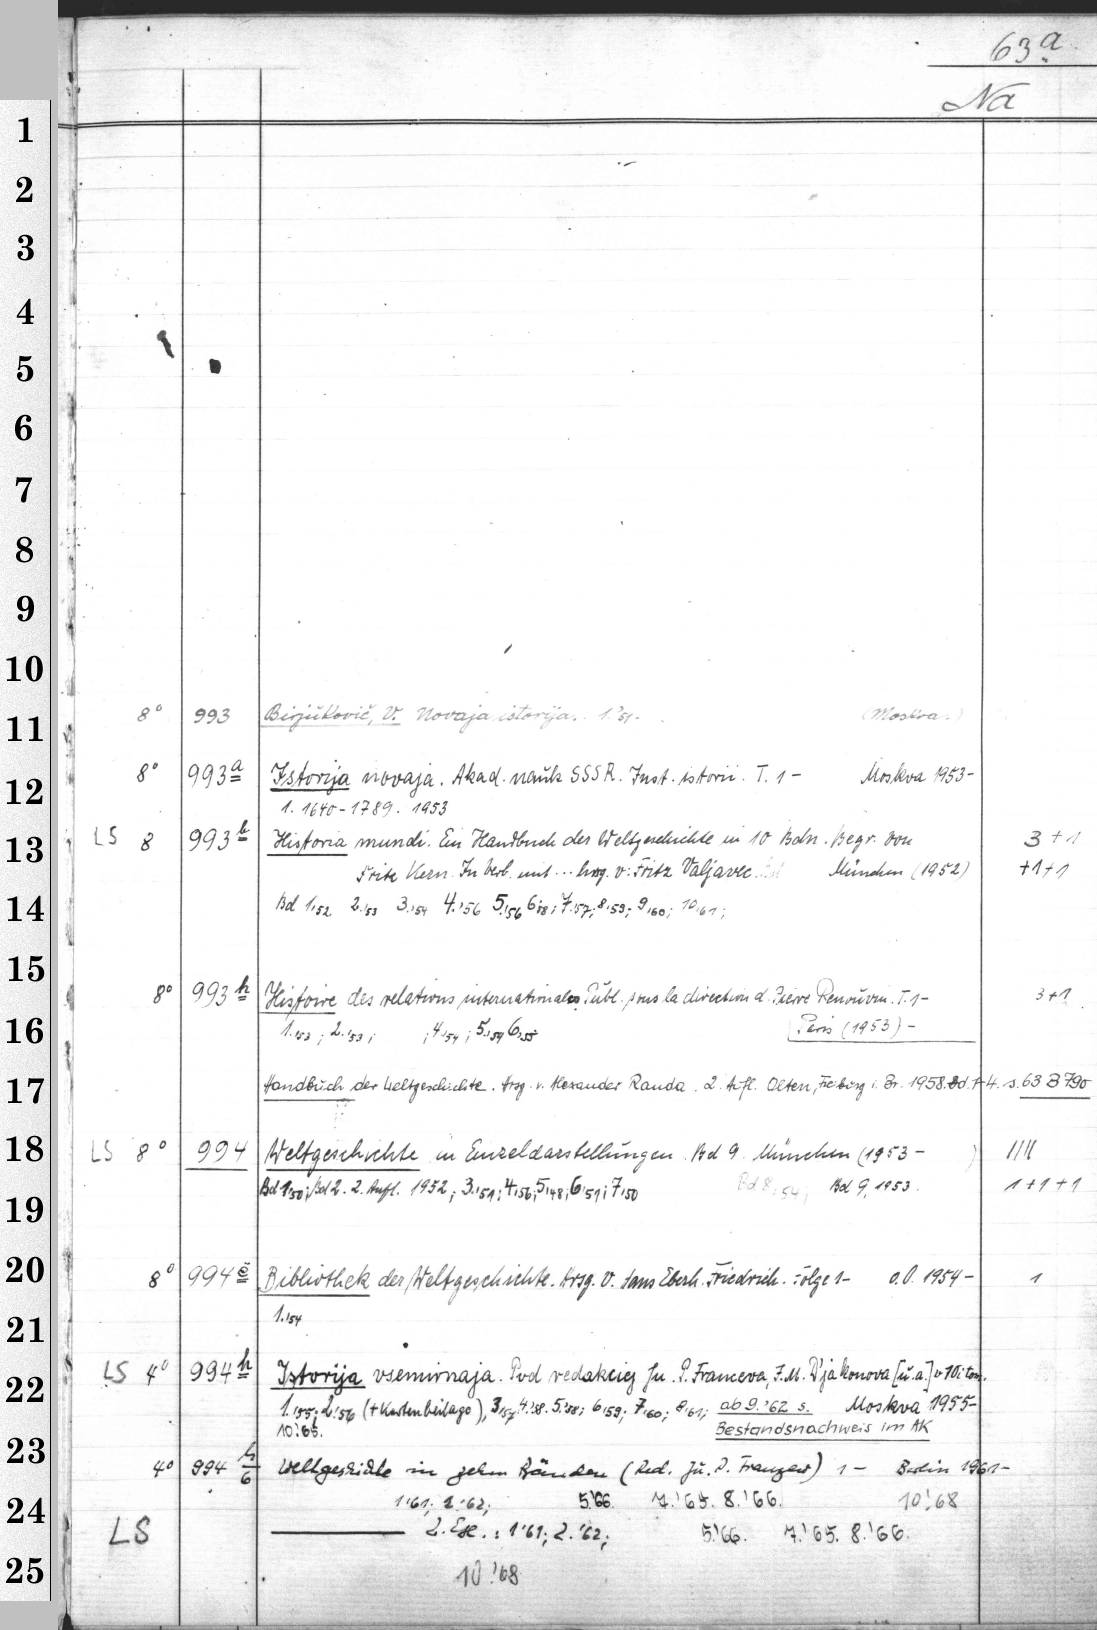 63a
Na
1
2
3
4
5
6
7
8
9
10
11 8° 993 Birjukovič, V. Novaja istorija. 1.'51. (Moskva.)
12 8° 993a Istorija novaja. Akad. nauk SSSR. Inst. istorii. T. 1- Moskva 1953-
1. 1640-1789. 1953
13 LS 8 993b Historia mundi. Ein Handbuch der Weltgeschichte in 10 Bdn. Begr. von 3+1
Fritz Kern. In verb. mit ... hrsg. v. Fritz Valjavec. München (1952) +1+1
14 Bd 1.'52 2.'53 3.'54 4.'56 5.'56 6.'58; 7.'57; 8.'59; 9.'60; 10.'61;
15 8° 993h Histoire des relations internationales. Publ. sous la direction d. Pierre Renouvin. T. 1- 3+1
16 1.'53; 2.'53; ; 4.'54; 5.'54 6.'55 Paris (1953)-
17 Handbuch der Weltgeschichte. Hrsg. v. Alexander Randa. 2. Aufl. Olten, Freiburg i. Br. 1958. Bd. 1-4. s. 63 B 790
18 LS 8° 994 Weltgeschichte in Einzeldarstellungen. Bd 9. München (1953- ) IIII
19 Bd 1.'50; Bd 2. 2. Aufl. 1952; 3.'51; 4.'56; 5.'48; 6.'51; 7.'50 Bd 8.'54; Bd 9, 1953. 1+1+1
20 8° 994e Bibliothek der Weltgeschichte. Hrsg. v. Hans Eberh. Friedrich. Folge 1- o.O. 1954- 1
21 1.'54
22 LS 4° 994h Istorija vsemirnaja. Pod redakciej Ju. P. Franceva, I.M. D'jakonova [u.a.] v 10i tom.
1.'55; 2.'56 (+Kartenbeilage), 3.'57 4.'58. 5.'58; 6.'59; 7.'60; 8.'61; ab 9.'62 s. Moskva 1955-
10.'65. Bestandsnachweis im AK
23 4° 994 h/6 Weltgeschichte in zehn Bänden (Red. Ju. P. Franzew) 1- Berlin 1961-
24 1'61; 2.'62; 5.'66. 7.'65. 8.'66. 10.'68
LS 2. Ex.: 1'61; 2.'62; 5.'66. 7.'65. 8.'66.
25 10.'68